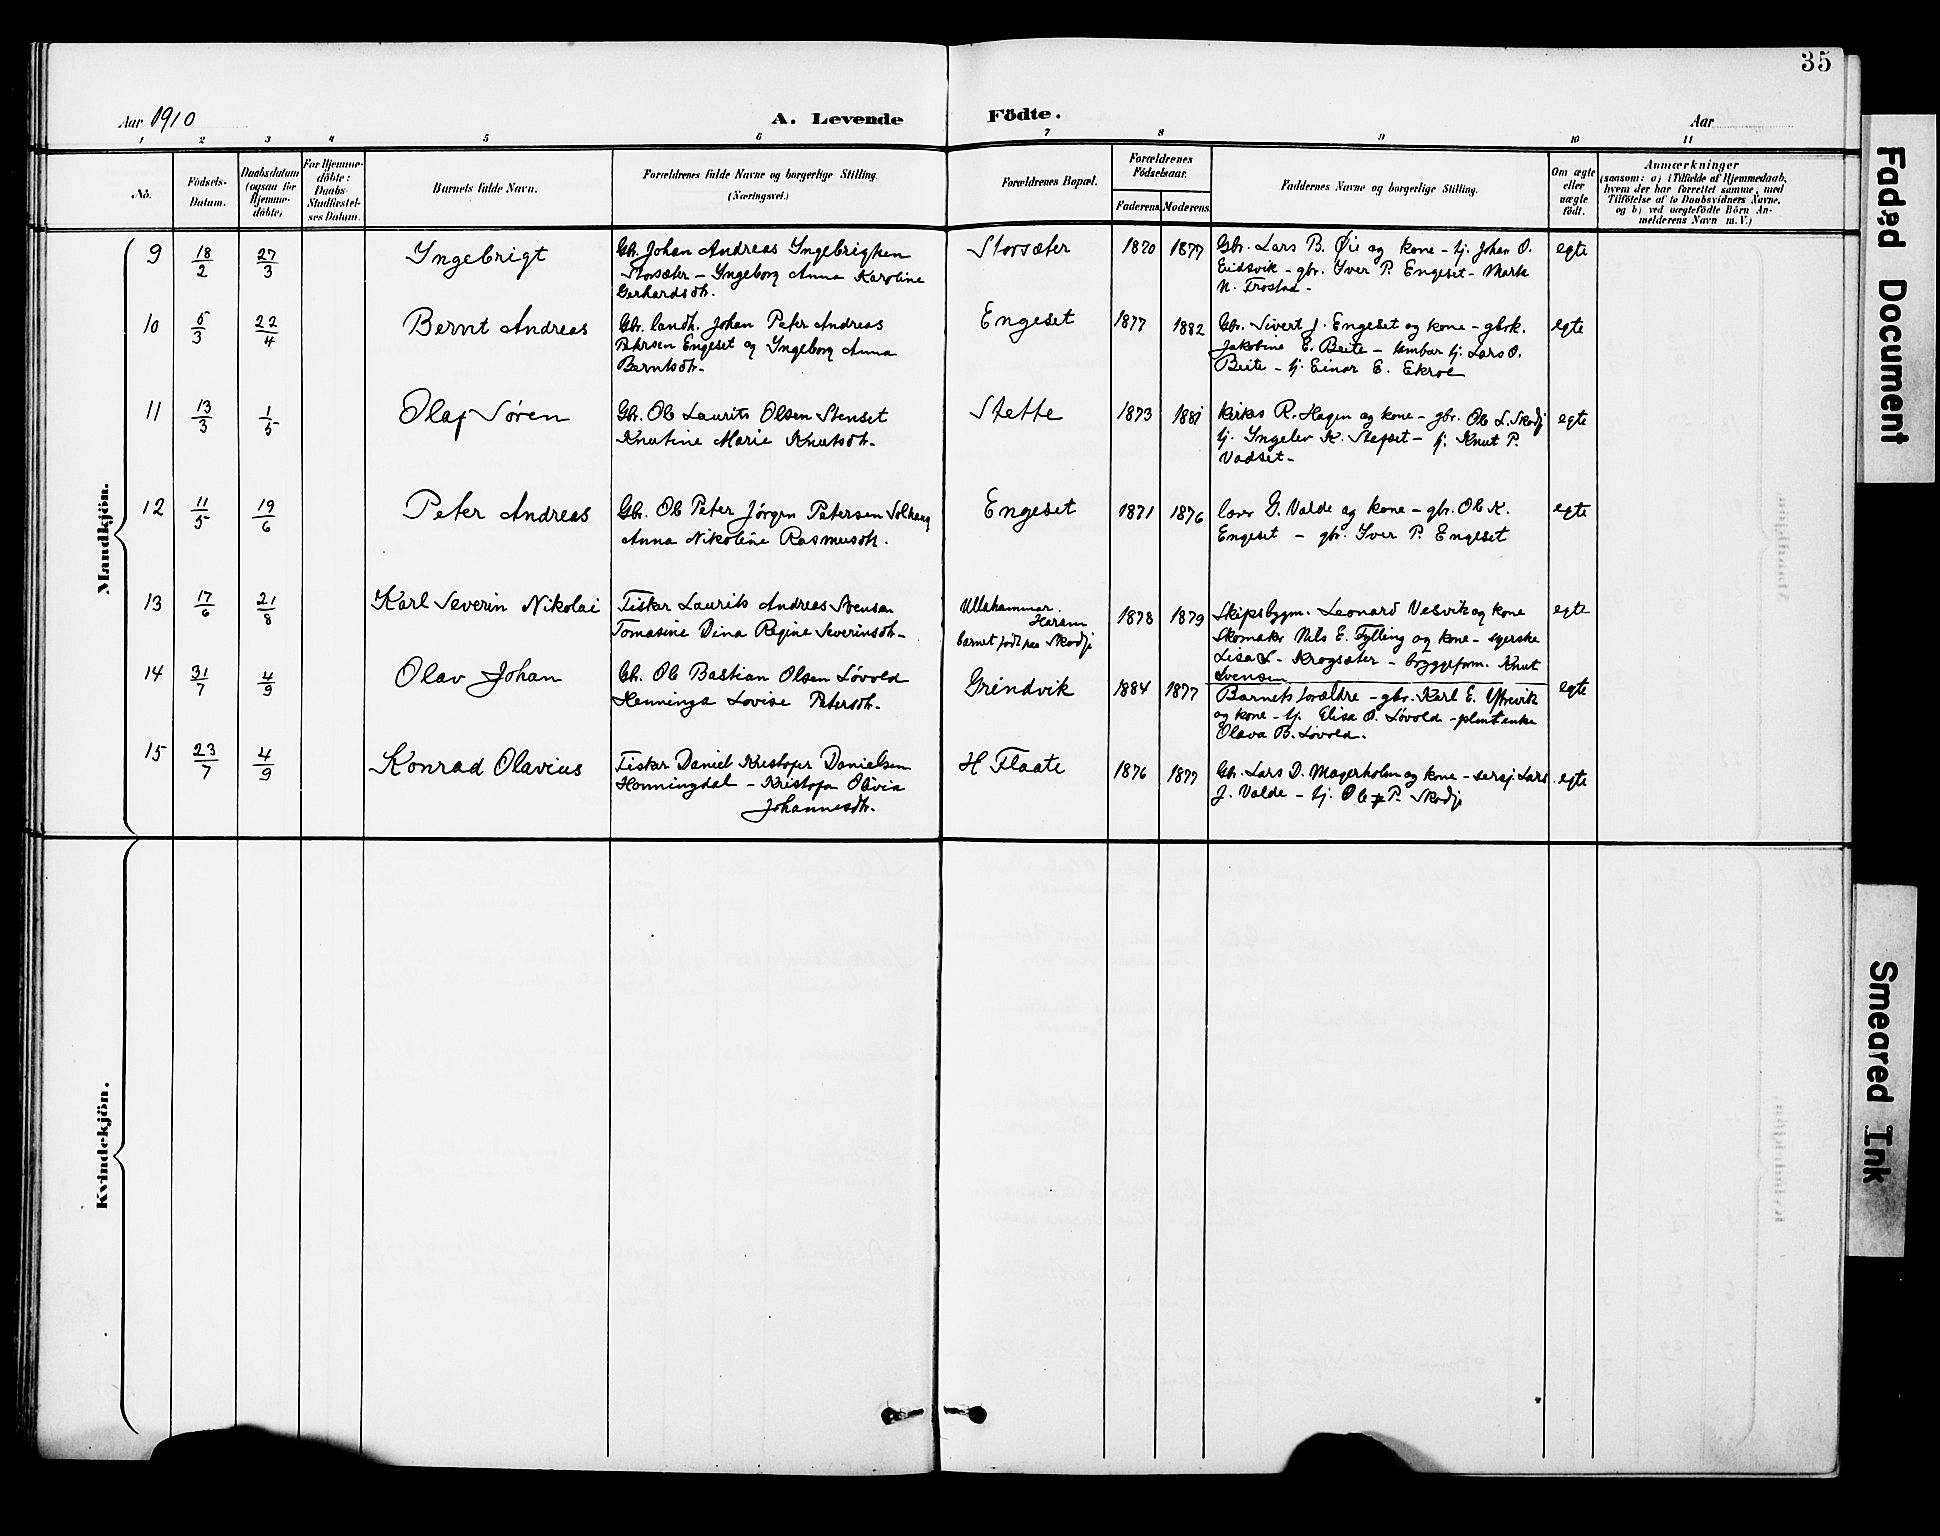 35
Aar 1910
A. Levende Födte.
Aar
1 2 3 4 5 6 7 8 9 10 11
No.
Födsels-Datum.
Daabsdatum (ogsaa for Hjemme-döbte)
For Hjemme-döbte: Daabs-Stadfæstel-ses Datum.
Barnets fulde Navn.
Forældrenes fulde Navne og borgerlige Stilling.
(Næringsvei.)
Forældrenes Bopæl.
Forældrenes Födselsaar.
Faderens Moderens
Faddernes Navne og borgerlige Stilling.
Om ægte eller uægte födt.
Anmærkninger
(saasom: a) i Tilfælde af Hjemmedaab,
hvem der har forrettet samme, med
Tilföielse af to Daabsvidners Navne,
og b) ved uægtefödte Börn An-
melderens Navn m. V.)
Mandkjön.
9 18/2 27/3 Ingebrigt Gbr. Johan Andreas Ingebrigtsen Storsæter 1870 1877 Gbr. Lars B. Øie og kone - tj. Johan O. egte
Storsæter - Ingeborg Anna Karoline Eidsvik - gbr. Iver P. Engeset - Marta
Gerhardsdtr. N. Frostad -
10 5/3 22/4 Bernt Andreas Gbr. landh. Johan Peter Andreas Engeset 1877 1882 Gbr. Sivert J. Engeset og kone - gbrk. egte
Petersen Engeset og Ingeborg Anna Jakobine E. Beite - tj. Lars O.
Berntsdtr. Beite - tj. Einar E. Ekroe
11 13/3 1/5 Olaf Søren Gbr. Ole Laurits Olsen Stenset Stette 1873 1881 R. Hagen og kone - gbr. Ole L. Skodje egte
Knutine Marie Knutsdtr. tj. K. - tj. Knut P.
Vadset -
12 11/5 19/6 Peter Andreas Gbr. Ole Peter Jörgen Petersen Engeset 1871 1876 lærer G. Valde og kone - gbr. Ole K. egte
Anna Nikoline Rasmusdtr. Engeset - gbr. Iver P. Engeset
13 17/6 21/8 Karl Severin Nikolai Fisker Laurits Andreas Svensen Ullahammar. 1878 1879 Skipsbygm. Leonard Vesvik og kone egte
Tomasine Dina Regine Severinsdtr. Haram Skomaker Nils E. Fylling og kone - syerske
barnet født paa Skodje Lisa L. Krogsæter - byggefom. Knut
Svensen
14 31/7 4/9 Olav Johan Gbr. Ole Bastian Olsen Løvold Grindvik 1884 1877 Barnets forældre - gbr. Karl E. Ytrevik egte
Henninga Lovise Petersdtr. og kone - tj. Elisa O. Løvold - enke
Olava B. Løvold.
15 23/7 4/9 Konrad Olavius Fisker Daniel Kristofer Danielsen H Flaate 1876 1877 Gbr. Lars D. Magerholm og kone - sersj. Lars egte
Henningdal - Kristofa Olivia J. Valde - tj. Ole P. Skodje
Johannesdtr.
Kvindekjön.
Faded Document
Smeared Ink